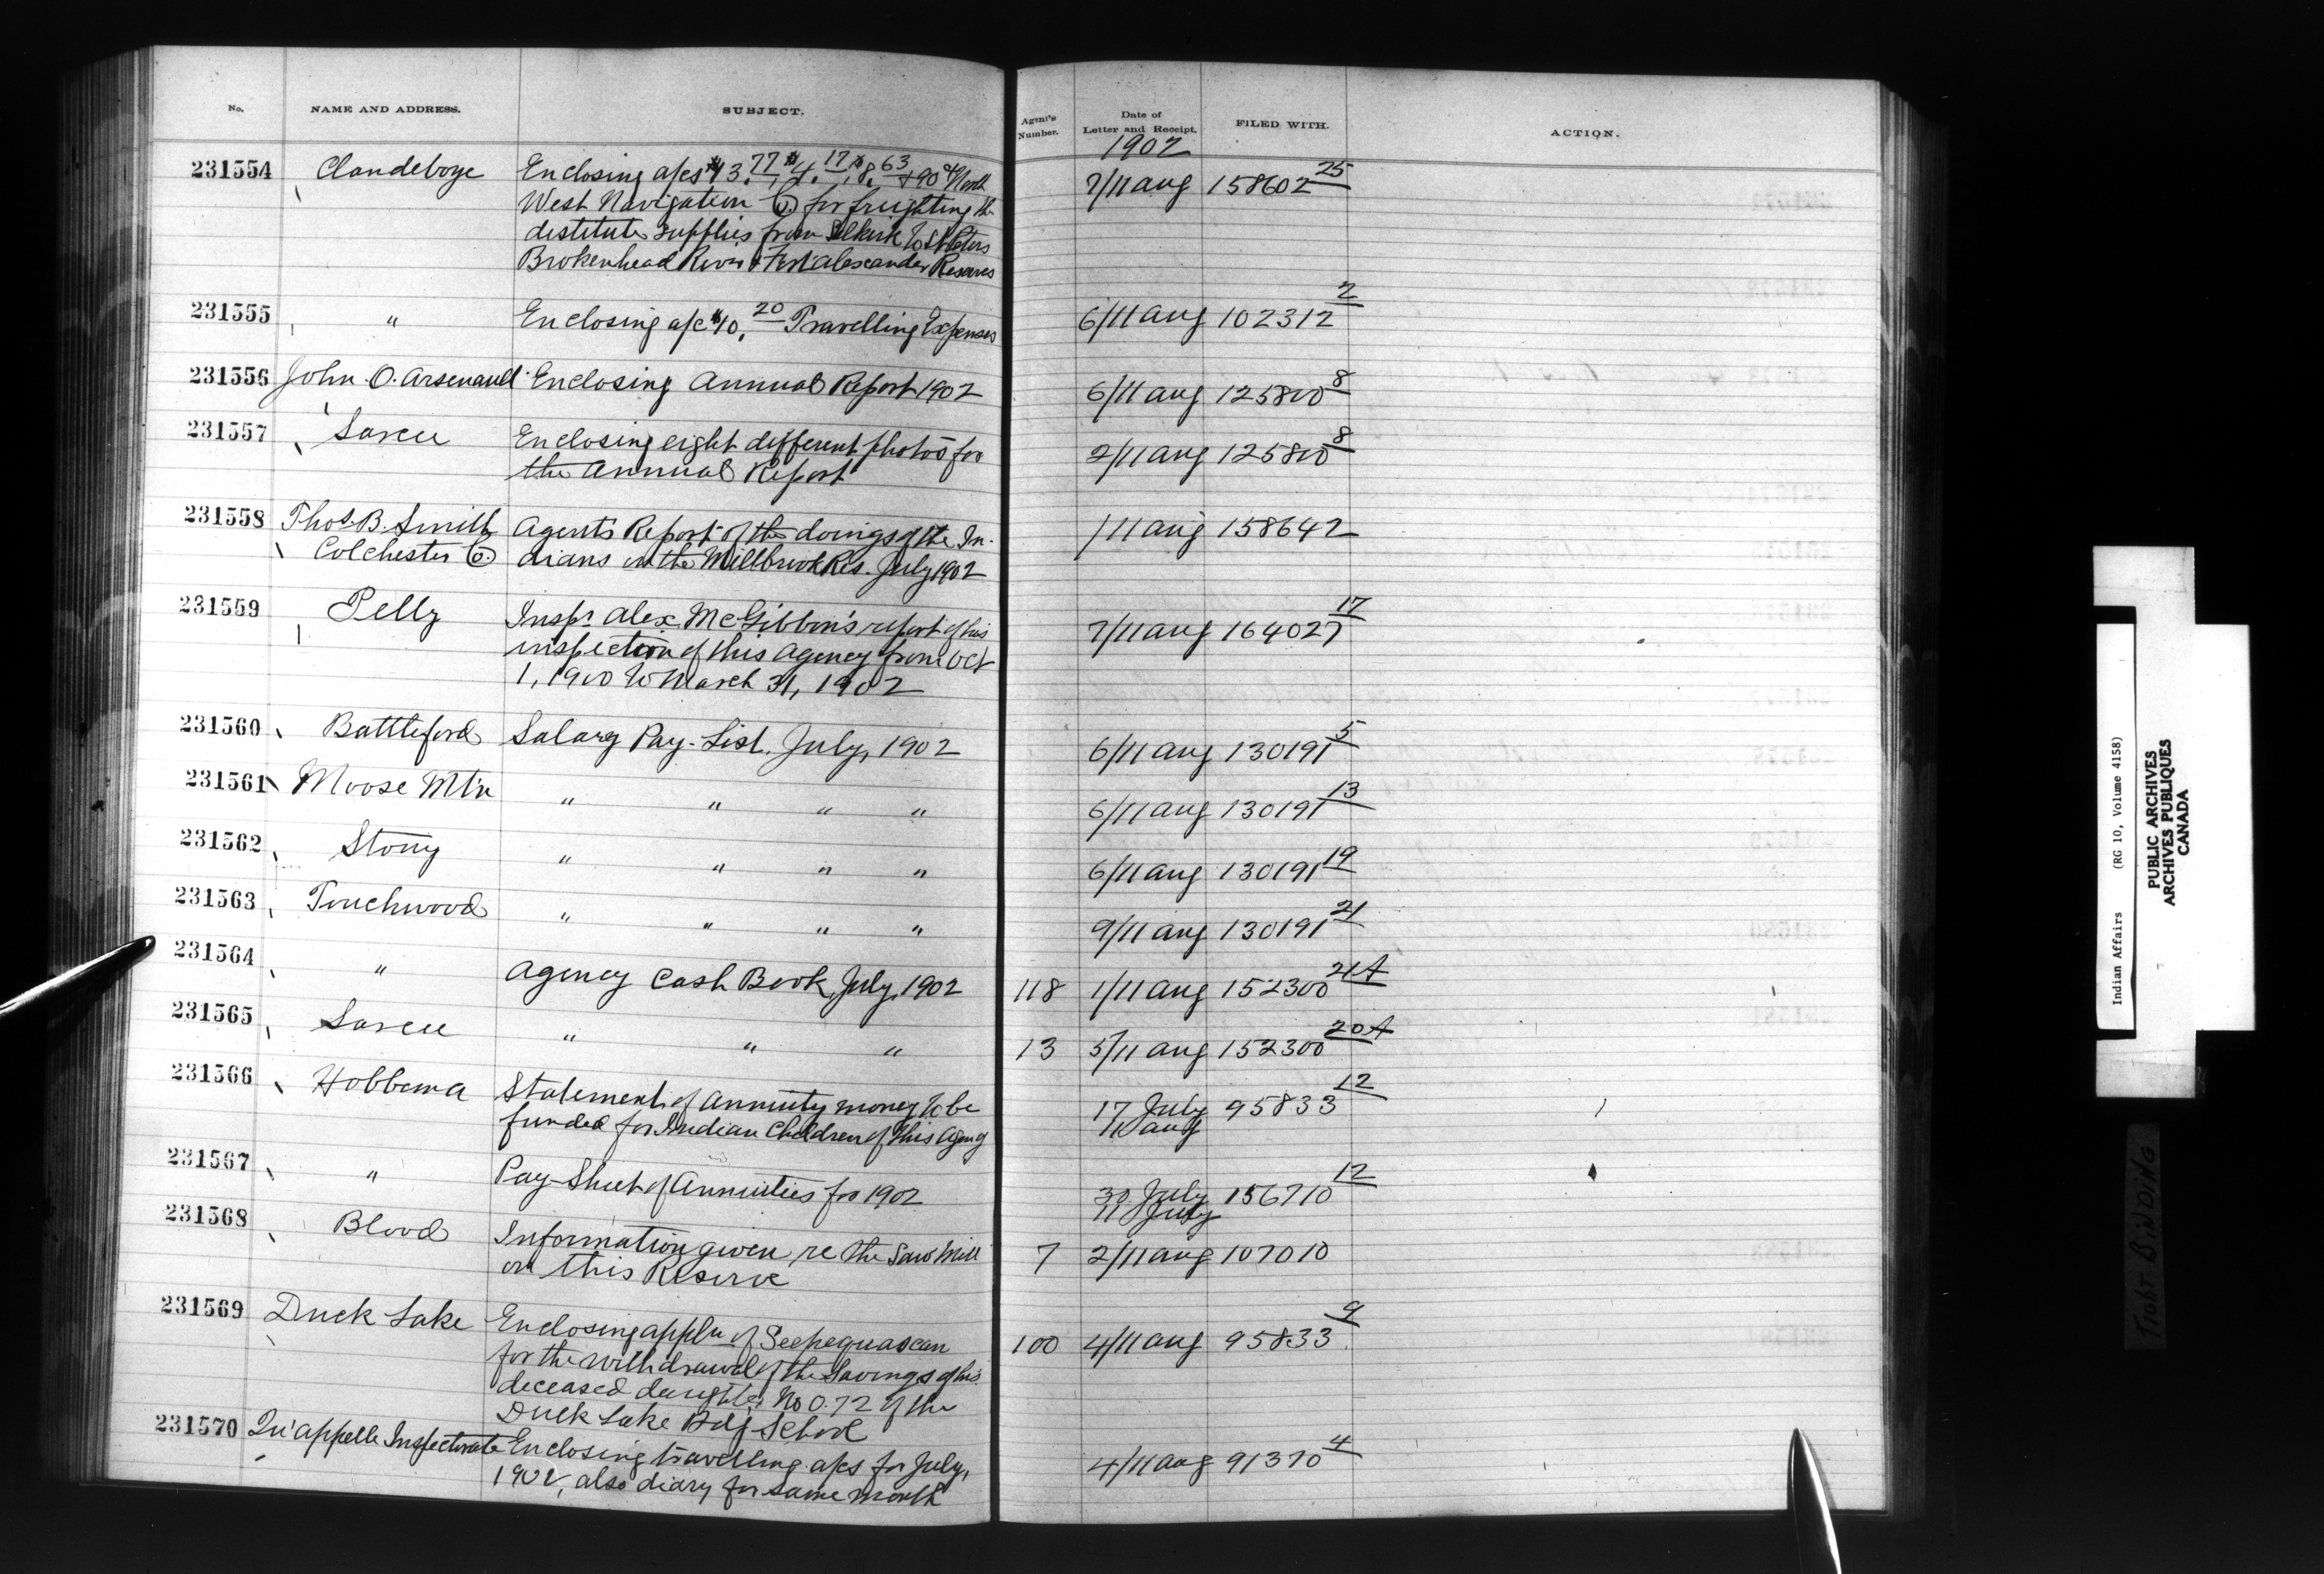 No. NAME AND ADDRESS. SUBJECT. Agent's Number. Date of Letter and Receipt. FILED WITH. ACTION.
1902
231554 Clandeboye Enclosing a/cs $13.77, $4.17, $8.63 + 90 of North 7/11 Aug 158602 25
West Navigation Co for freighting the
destitute supplies from Selkirk to St Peters
Brokenhead River & Fort Alexander Reserves
231555 " Enclosing a/c $10.20 Travelling Expenses 6/11 Aug 102312 2
231556 John O. Arsenault Enclosing Annual Report 1902 6/11 Aug 125800 8
231557 Sarcee Enclosing eight different photos for 2/11 Aug 125800 8
the Annual Report
231558 Thos. B. Smith Agents Report of the doings of the In- 1/11 Aug 158642
Colchester Co. dians on the Millbrook Res. July 1902
231559 Pelly Inspr. Alex McGibbon's report of his 7/11 Aug 164027 17
inspection of this Agency from Oct
1, 1900 to March 31, 1902
231560 Battleford Salary Pay-List. July, 1902 6/11 Aug 130191 5
231561 Moose Mt'n " " " " 6/11 Aug 130191 13
231562 Stony " " " " 6/11 Aug 130191 19
231563 Touchwood " " " " 9/11 Aug 130191 21
231564 " Agency Cash Book, July, 1902 118 1/11 Aug 152300 21A
231565 Sarcee " " " 13 5/11 Aug 152300 20A
231566 Hobbema Statement of Annuity money to be 17 July 95833 12
funded for Indian Children of this Agency 11 Aug
231567 " Pay-Sheet of Annuities for 1902 30 July 156710 12
11 July
231568 Blood Information given re the Saw Mill 7 2/11 Aug 107010
on this Reserve
231569 Duck Lake Enclosing appln of Seepequascan 100 4/11 Aug 95833 9
for the withdrawal of the Savings of his
deceased daughter, No 0.72 of the
Duck Lake Bdg School
231570 Qu'appelle Inspectorate Enclosing travelling a/cs for July, 4/11 Aug 91370 4
1902, also diary for same month
Indian Affairs (RG 10, Volume 4158)
PUBLIC ARCHIVES
ARCHIVES PUBLIQUES
CANADA
TIGHT BINDING